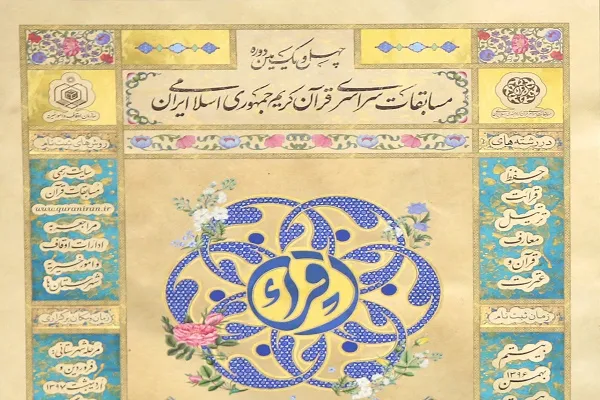 چهل و یکمین دوره
مسابقات سراسری قرآن کریم جمهوری اسلامی ایران
در رشته‌های
حفظ
قرائت
ترتیل
معارف
قرآن و
عترت
زمان ثبت نام
بیستم
بهمن
۱۳۹۶
اقراء
سایت رسمی
مسابقات قرآن
www.quraniran.ir
مراجعه به
ادارات اوقاف
و امور خیریه
شهرستان‌ها
مرحله شهرستانی:
فروردین و
اردیبهشت ۱۳۹۷